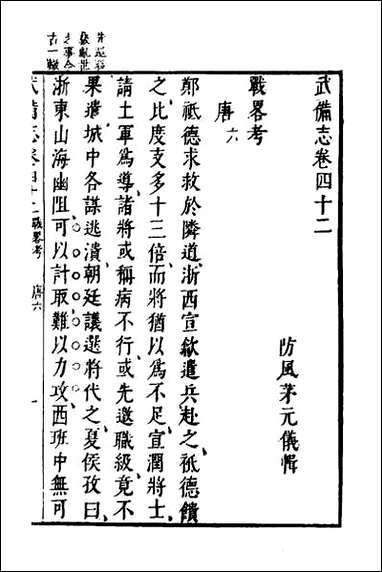 武備志卷四十二
防風茅元儀輯
戰畧考
唐六
鄭祗德求救於隣道、浙西宣歙遣兵赴之、祗德饋
之、比度支多十三倍、而將猶以爲不足、宣潤將士、
請土軍爲導、諸將或稱病不行、或先邀職級、竟不
果遣、城中各謀逃潰、朝廷議選將代之、夏侯孜曰、
浙東山海幽阻、可以計取、難以力攻、西班中無可
先邀職
級亂世
之事今
古一轍
武備志卷四十二 戰畧考 唐六 一